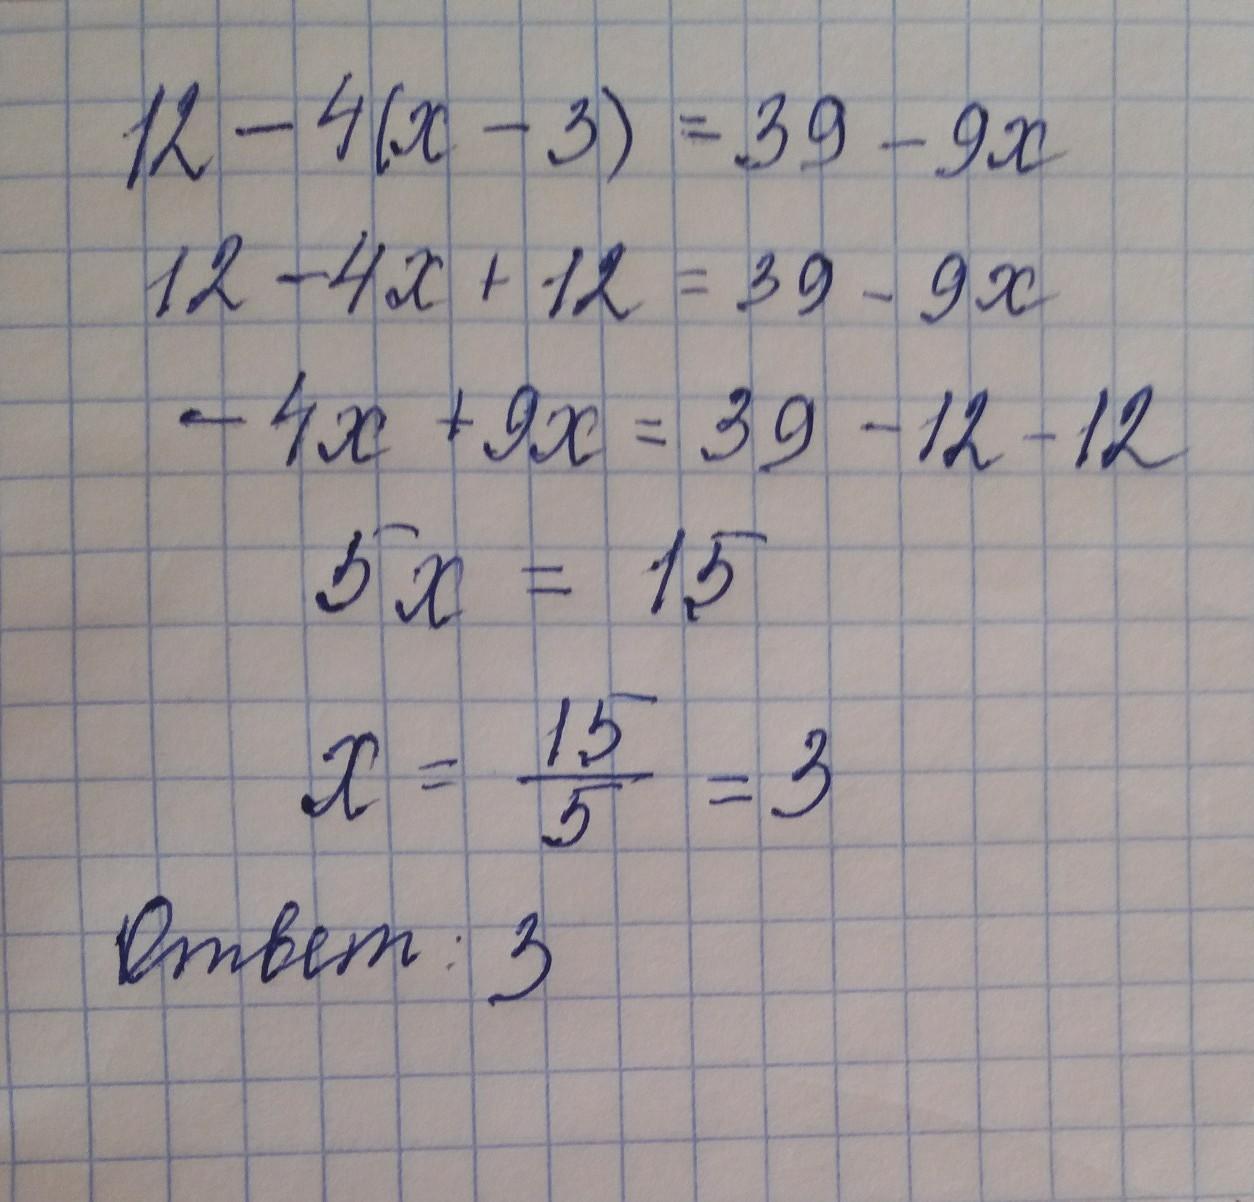 12 - 4(x - 3) = 39 - 9x
12 - 4x + 12 = 39 - 9x
- 4x + 9x = 39 - 12 - 12
5x = 15
x = 15/5 = 3
Ответ: 3